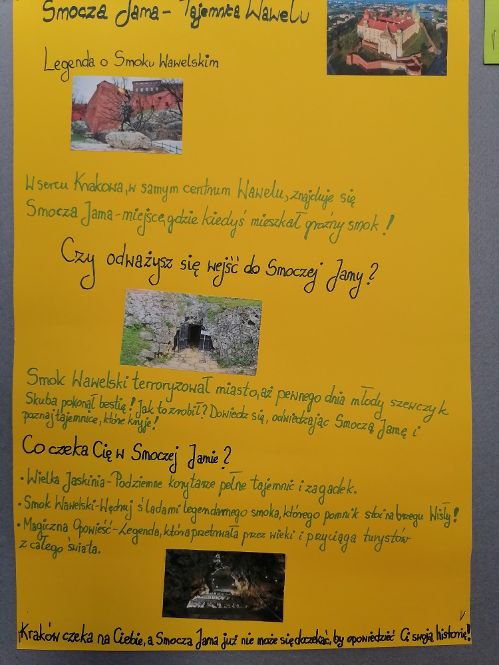 Smocza Jama - Tajemnica Wawelu
Legenda o Smoku Wawelskim
W sercu Krakowa, w samym centrum Wawelu, znajduje się
Smocza Jama - miejsce, gdzie kiedyś mieszkał groźny smok!
Czy odważysz się wejść do Smoczej Jamy?
Smok Wawelski terroryzował miasto, aż pewnego dnia młody szewczyk
Skuba pokonał bestię! Jak to zrobił? Dowiedz się, odwiedzając Smoczą Jamę i
poznaj tajemnice, które kryje!
Co czeka Cię w Smoczej Jamie?
• Wielka Jaskinia - Podziemne korytarze pełne tajemnic i zagadek.
• Smok Wawelski - Wędruj śladami legendarnego smoka, którego pomnik stoi na brzegu Wisły!
• Magiczna Opowieść - Legenda, która przetrwała przez wieki i przyciąga turystów
z całego świata.
Kraków czeka na Ciebie, a Smocza Jama już nie może się doczekać, by opowiedzieć Ci swoją historię!